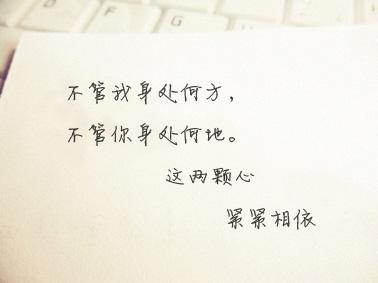 D F G
不管我身处何方，
不管你身处何地。
这两颗心
紧紧相依